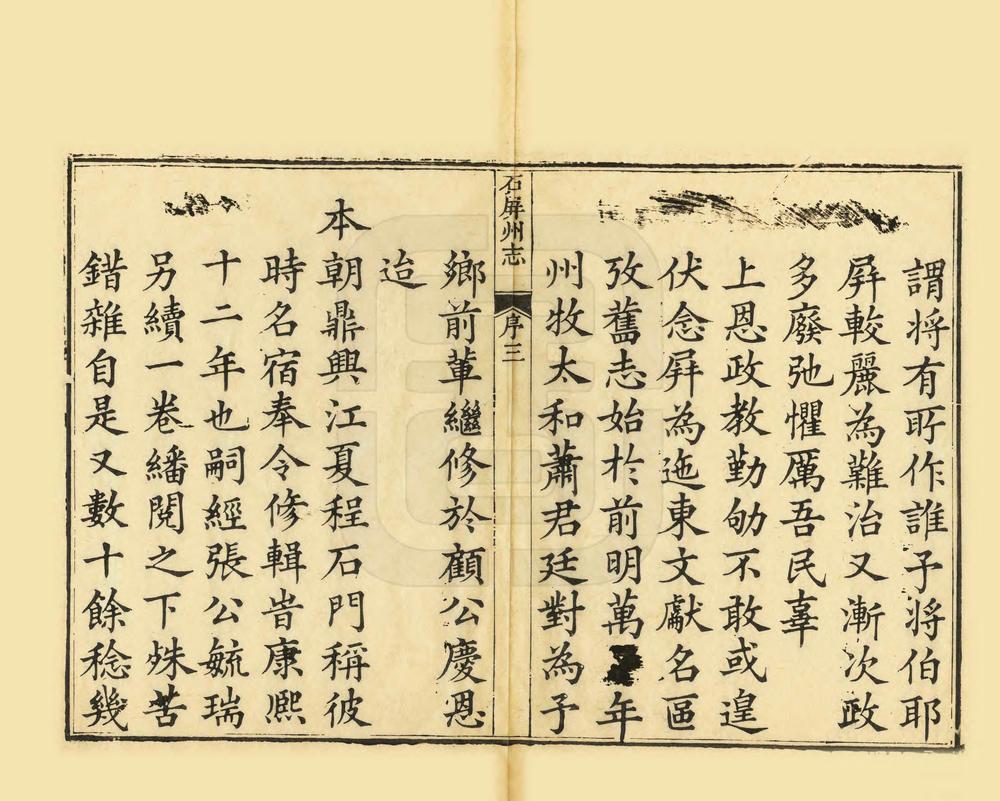 謂將有所作誰予將伯耶
屛較麗為難治又漸次政
多廢弛懼厲吾民辜
上恩政教勤劬不敢或遑
伏念屛為迤東文獻名區
攷舊志始於前明萬年
州牧太和蕭君廷對為予
石屏州志 序 三
鄉前軰繼修於顧公慶恩
迨
本朝鼎興江夏程石門稱彼
時名宿奉令修輯旹康熙
十二年也嗣經張公毓瑞
另續一卷繙閱之下殊苦
錯雜自是又數十餘稔幾